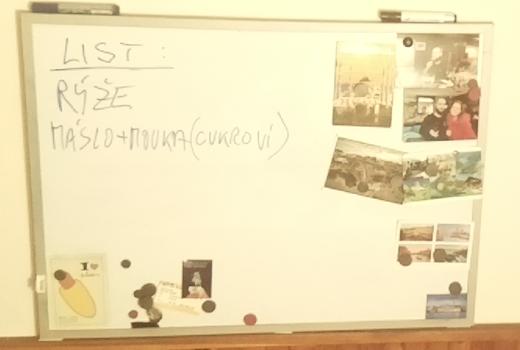 LIST :
RÝŽE
MÁSLO+MOUKA(CUKROVÍ)
I